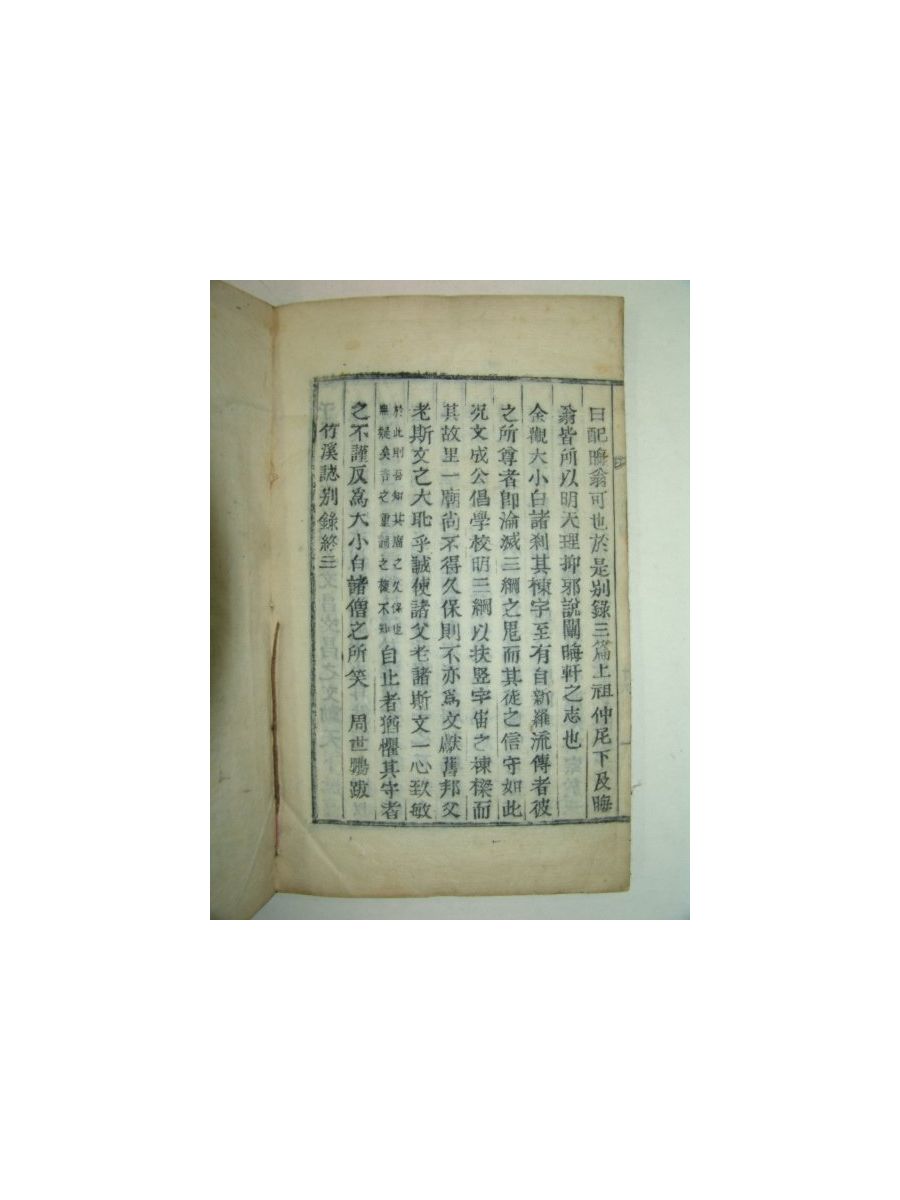 曰配晦翁可也於是别錄三篇上祖仲尼下及晦
翁皆所以明天理抑邪說闡晦軒之志也
余觀大小白諸刹其棟宇至有自新羅流傳者彼
之所尊者卽淪滅三綱之鬼而其徒之信守如此
况文成公倡學校明三綱以扶竪宇宙之棟樑而
其故里一廟尚不得久保則不亦爲文獻舊邦父
老斯文之大耻乎誠使諸父老諸斯文一心致敏
於此則吾知其廟之久保也
無疑矣言之重詞之複不知
自止者猶懼其守者
之不謹反爲大小白諸僧之所笑 周世鵬跋
竹溪誌别錄終三